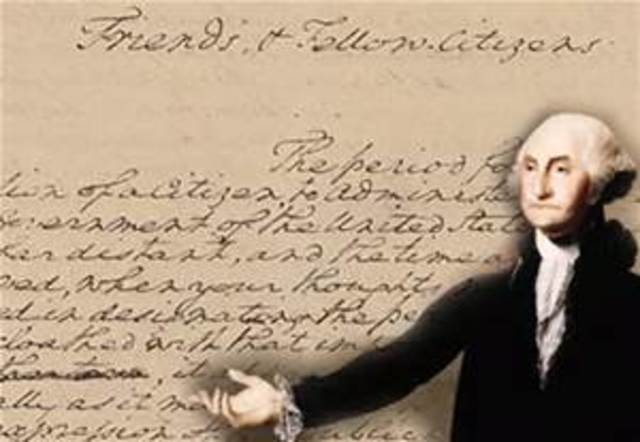 Friends, & Fellow-Citizens
The period fo
tion of a Citizen, to administe
Government of the United State
far distant, and the time a
ved, when your thoughts
ed in designating the pe
cloathed with that im
, it
ally as it ma
expression of public